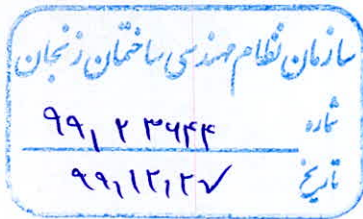 سازمان نظام مهندسی ساختمان زنجان
شماره ۹۹,۲۳۶۴۴
تاریخ ۹۹,۱۲,۲۷